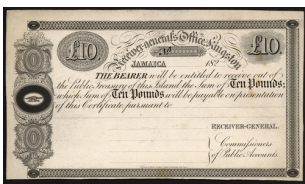 Receiver-General's Office, Kingston
£10 No. £10.
JAMAICA 182
THE BEARER will be entitled to receive out of
the Public Treasury of this Island the Sum of Ten Pounds;
which Sum of Ten Pounds will be payable on presentation
of this Certificate pursuant to
RECEIVER-GENERAL.
Commissioners
of Public Accounts.